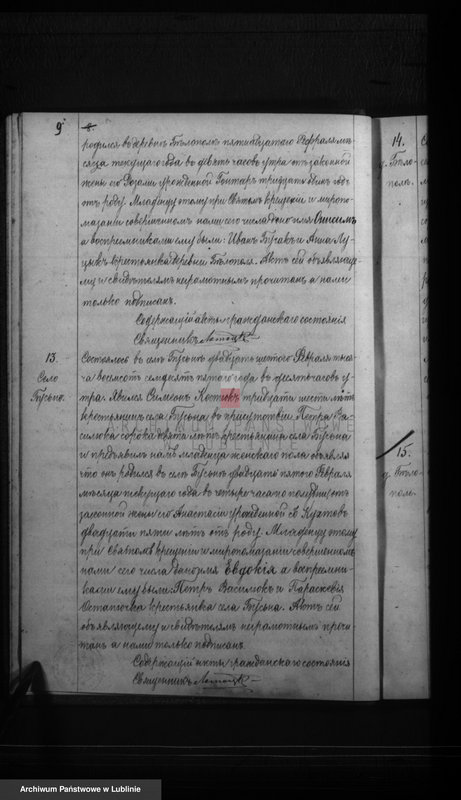 9
8.
родился въ деревнѣ Бѣлополѣ пятнадцатого Февраля мѣ-
сяца текущаго года въ девять часовъ утра отъ законной
жены его Розаліи урожденной Гонтаръ тридцать одинъ годъ
отъ роду. Младенцу этому при Святомъ крещеніи и миропо-
мазаніи совершенномъ нами сего числа дано имя Онисимъ
а воспріемниками ему были: Иванъ Гусакъ и Анна Лу-
цюкъ крестьянка деревни Бѣлополя. Актъ сей объявляюще-
му и свидѣтелямъ неграмотнымъ прочитанъ а нами
только подписанъ.
Содержащій акты гражданскаго состоянія
Священникъ
13.
Село
Гусынь.
Состоялось въ селѣ Гусынѣ двадцать шестого Февраля тыся-
ча восемсотъ семдесятъ пятого года въ десять часовъ у-
тра. Явился Симеонъ Котикъ тридцати шести лѣтъ
крестьянинъ села Гусыня въ присутствіи Петра Ва-
силюка сорока лѣтъ крестьянина села Гусыня
и предъявилъ намъ младенца женскаго пола объявляя
что онъ родился въ селѣ Гусынѣ двадцать пятого Февраля
мѣсяца текущаго года въ четыре часа по полудни отъ
законной жены его Анастасіи урожденной
двадцати пяти лѣтъ отъ роду. Младенцу этому
при Святомъ крещеніи и миропомазаніи совершенномъ
нами сего числа дано имя Евдокія а воспріемни-
ками ему были: Петръ Василюкъ и Параскевія
Остапюка крестьянка села Гусыня. Актъ сей
объявляющему и свидѣтелямъ неграмотнымъ прочи-
танъ а нами только подписанъ
Содержащій акты гражданскаго состоянія
Священникъ
14.
д. Бѣло-
поль.
15.
д. Бѣло-
поль.
ARCHIWUM PAŃSTWOWE
W LUBLINIE
Archiwum Państwowe w Lublinie